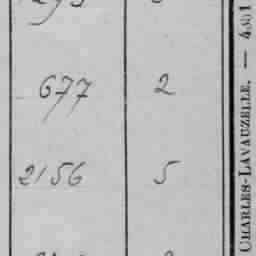 677 2
2156 5
CHARLES-LAVAUZELLE. —